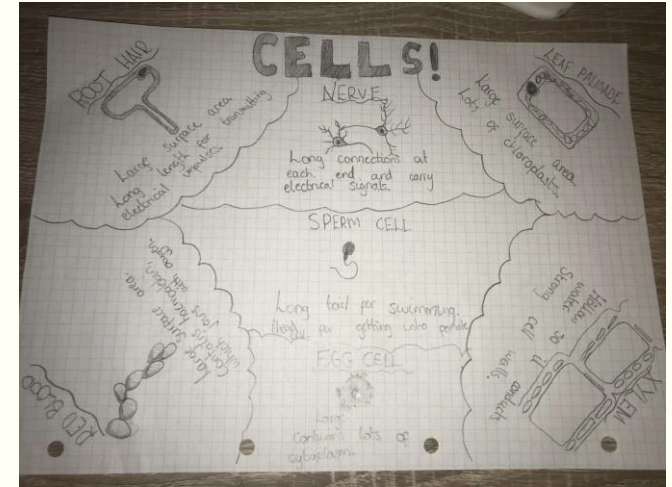 CELLS!
ROOT HAIR
Large surface area
Long length for transmitting
electrical impulses.
NERVE
Long connections at
each end and carry
electrical signals.
LEAF PALISADE
Large surface area
Lots of chloroplasts.
SPERM CELL
Long tail for swimming.
Head for getting into
EGG CELL
Large
Contains lots of
cytoplasm.
RED BLOOD
Large surface area.
Contains haemoglobin,
which joins with
XYLEM
Hollow so it conducts
water
Strong cell walls.